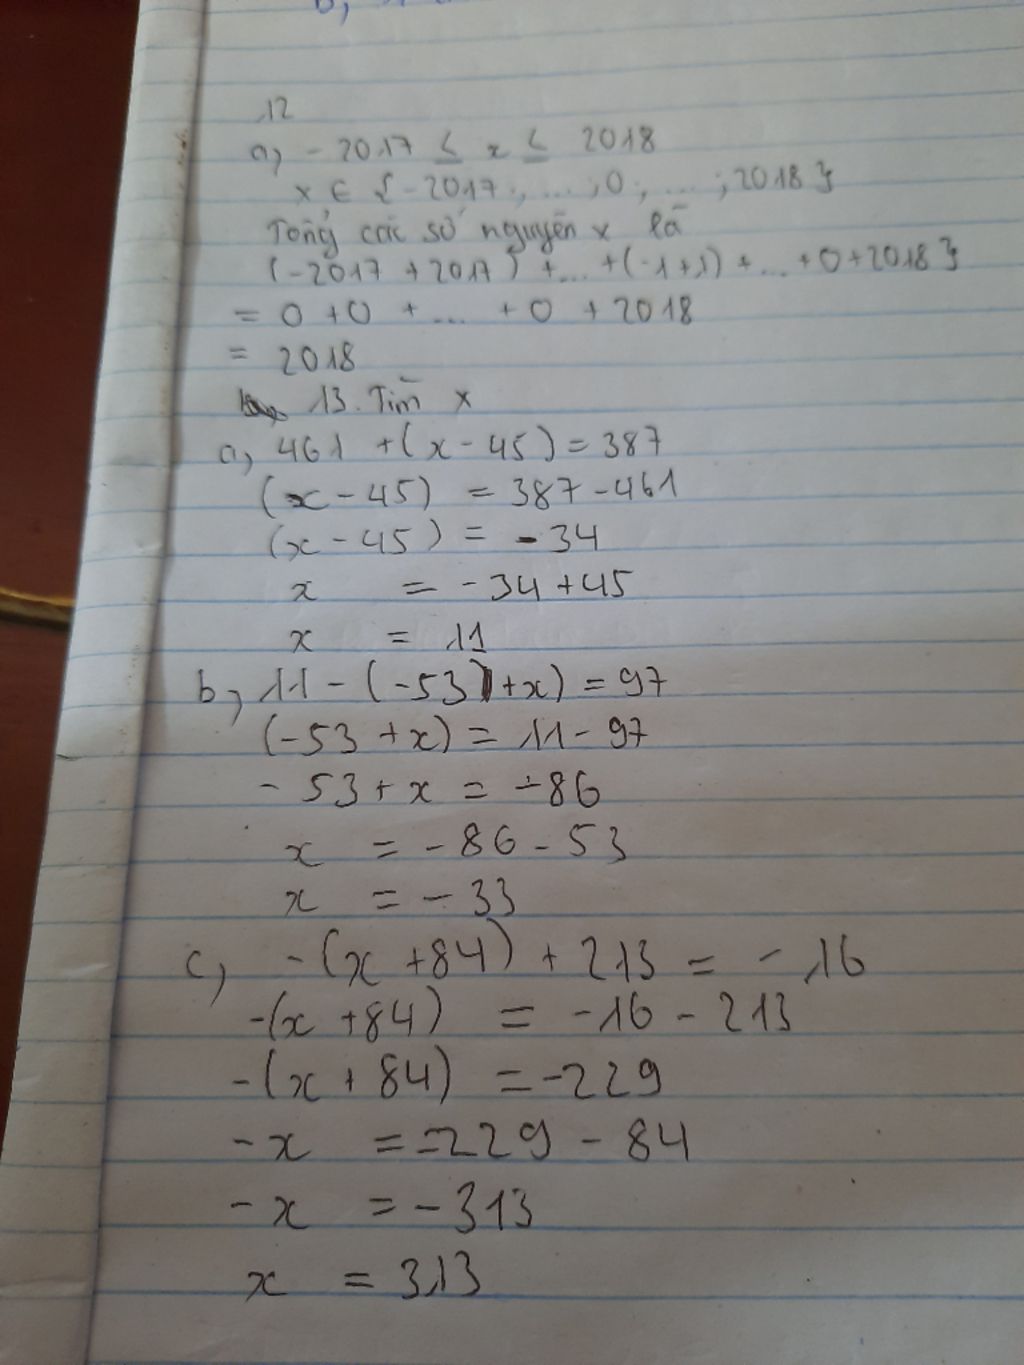 12
a, - 2017 ≤ x ≤ 2018
x ∈ {-2017; ... ; 0; ... ; 2018}
Tổng các số nguyên x là
(-2017 + 2017) + ... + (-1+1) + ... + 0 + 2018}
= 0 + 0 + ... + 0 + 2018
= 2018
13. Tìm x
a, 461 + (x - 45) = 387
(x - 45) = 387 - 461
(x - 45) = - 34
x = - 34 + 45
x = 11
b, 11 - (-53 + x) = 97
(-53 + x) = 11 - 97
- 53 + x = - 86
x = - 86 - 53
x = - 33
c, -(x + 84) + 213 = - 16
-(x + 84) = -16 - 213
-(x + 84) = -229
- x = -229 - 84
- x = - 313
x = 313